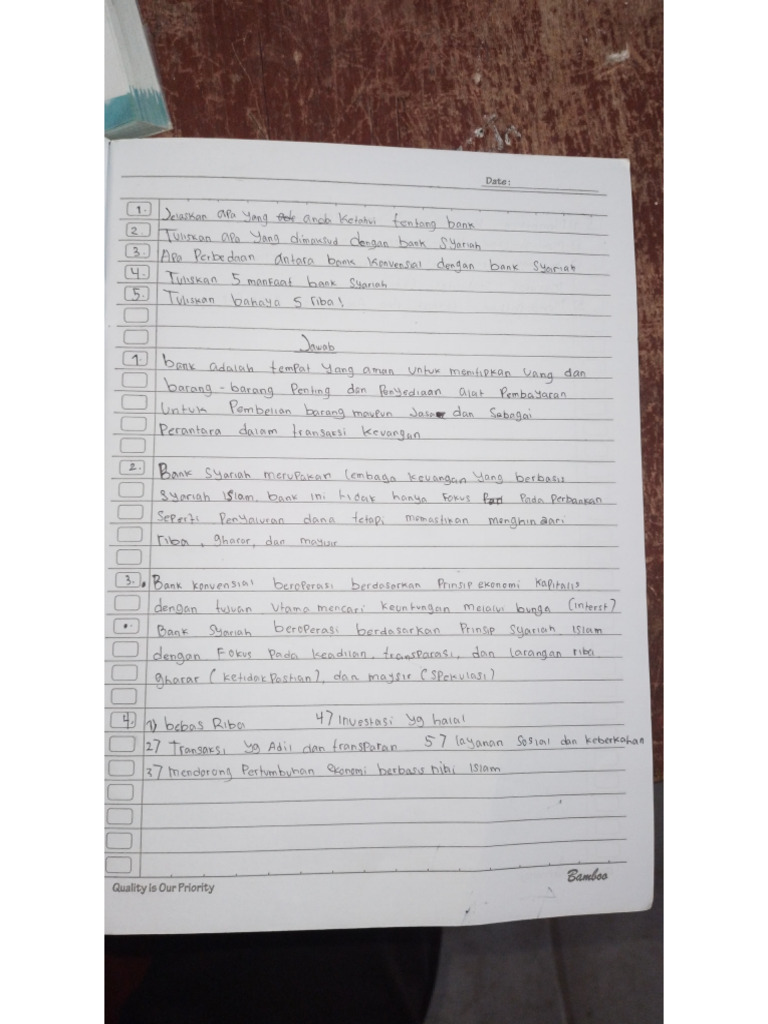 Date:
1. Jelaskan apa yang anda ketahui tentang bank
2. Tuliskan apa yang dimaksud dengan bank Syariah
3. Apa Perbedaan antara bank konvensial dengan bank Syariah
4. Tuliskan 5 manfaat bank Syariah
5. Tuliskan bahaya 5 riba!
Jawab
1. bank adalah tempat yang aman untuk menitipkan uang dan
barang-barang Penting dan Penyediaan alat Pembayaran
Untuk Pembelian barang maupun Jasa dan Sebagai
Perantara dalam transaksi keuangan
2. Bank Syariah merupakan lembaga keuangan yang berbasis
Syariah Islam. bank ini tidak hanya Fokus Pada Perbankan
Seperti Penyaluran dana tetapi memastikan menghindari
riba, gharar, dan maysir
3. • Bank konvensial beroperasi berdasarkan Prinsip ekonomi kapitalis
dengan tujuan utama mencari keuntungan melalui bunga (interst)
• Bank Syariah beroperasi berdasarkan Prinsip Syariah Islam
dengan Fokus Pada keadilan, transparasi, dan larangan riba
gharar (ketidak Pastian), dan maysir (Spekulasi)
4. 1) bebas Riba 4) Investasi yg halal
2) Transaksi yg Adil dan transparan 5) layanan Sosial dan keberkahan
3) mendorong Pertumbuhan ekonomi berbasis nilai Islam
Quality is Our Priority Bamboo